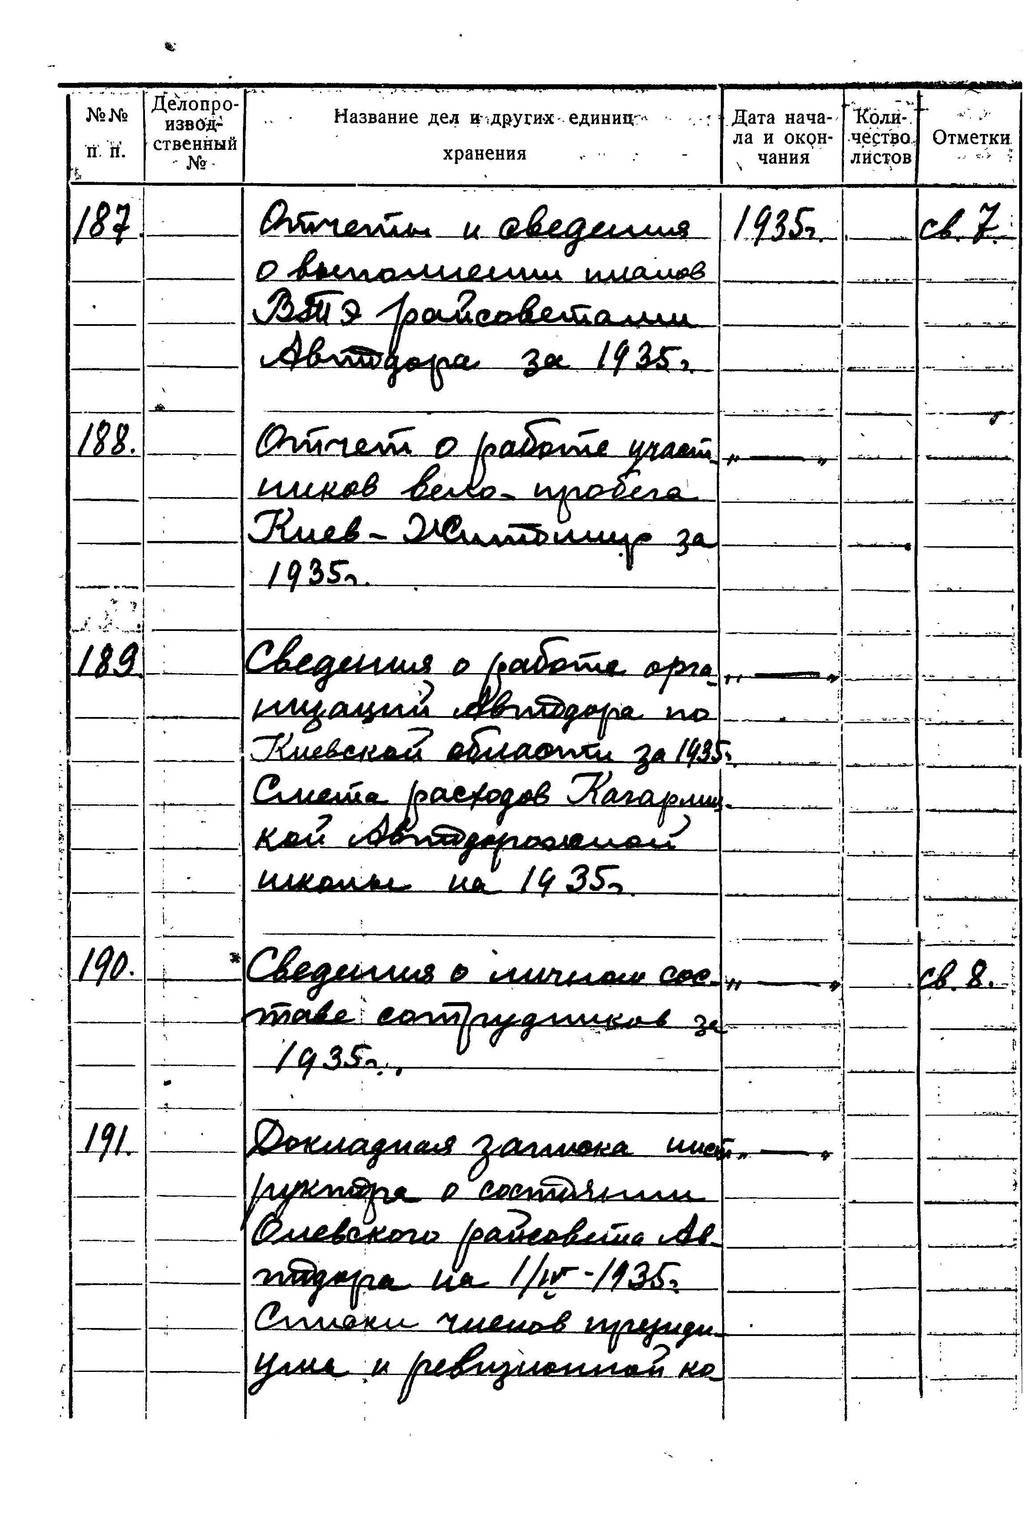 №№ п. п.
Делопроизвод-ственный №
Название дел и других единиц хранения
Дата начала и окончания
Количество листов
Отметки
187. Отчеты и сведения 1935г. св. 7.
о выполнении планов
райсоветами
Автодора за 1935г.
188. Отчет о работе участ- „ — „
ников вело-пробега
Киев - Житомир за
1935г.
189. Сведения о работе орга- „ — „
низаций Автодора по
Киевской области за 1935г.
Смета расходов Кагарлиц-
кой Автодорожной
школы на 1935г.
190. Сведения о личном сос- „ — „ св. 8.
таве сотрудников за
1935г.
191. Докладная записка инст- „ — „
руктора о состоянии
Олевского райсовета Ав-
тодора на 1/IV-1935г.
Списки членов президи-
ума и ревизионной ко